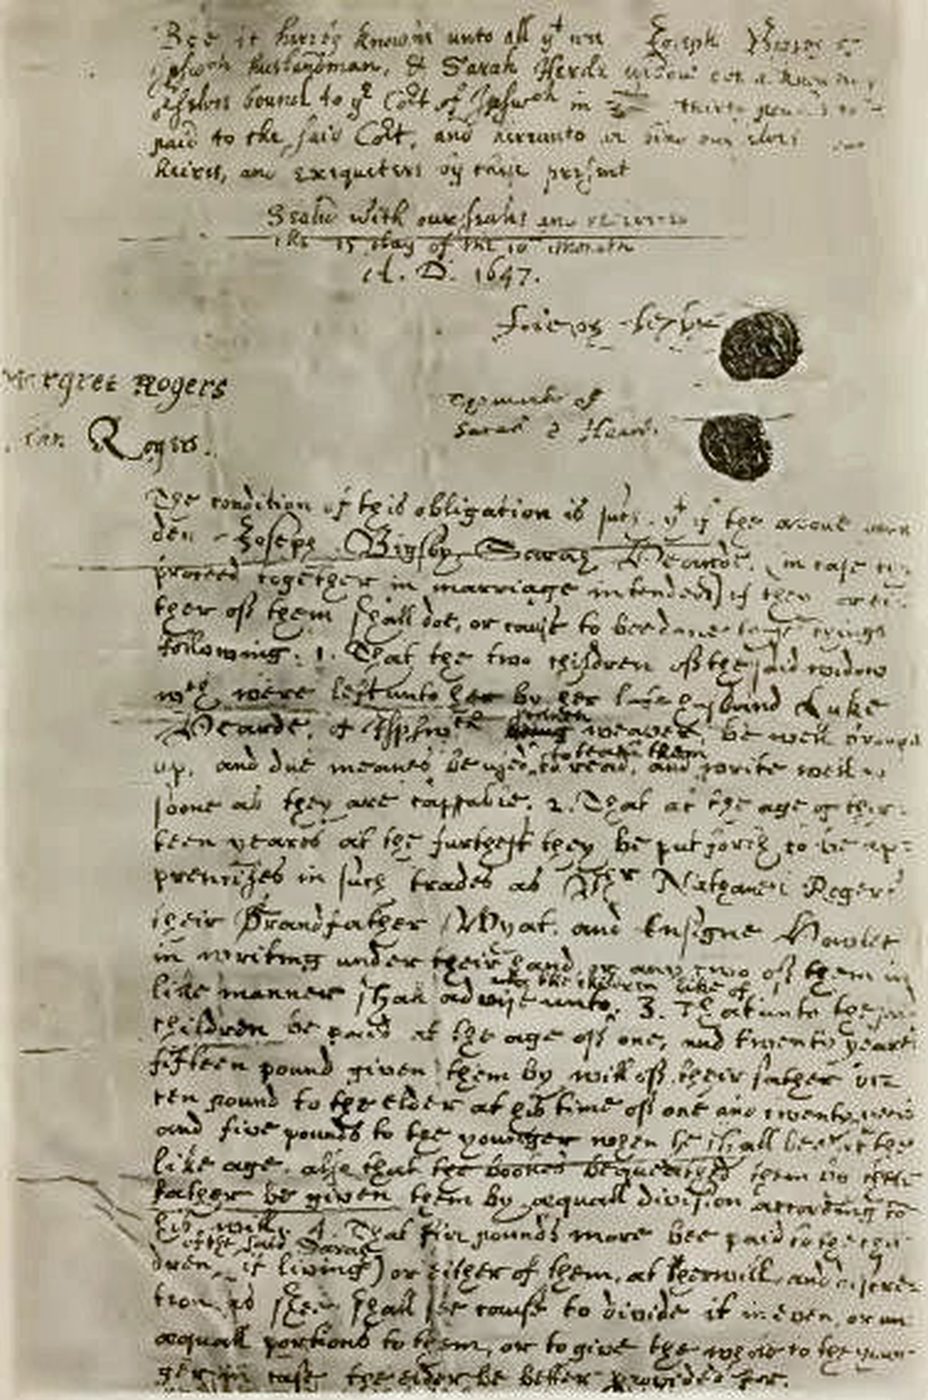 Bee it hereby knowne unto all yt wee Joseph Bigsby of
Ipswch husbandman, & Sarah Herde widow
selves bound to ye Cort of Ipswch in thirty pound to
paid to the said Cort, and hereunto
heires, and exequeters by these present
Seald with our seals and
the 15 day of the 10th Month
A. D. 1647.
Joseph
Margret Rogers
the mark of
Sarah Heard.
Rogers.
The condition of this obligation is such. yt if the above
den Joseph Bigsby Sarah Hearde, (in case the
proceed together in marriage intended) if they or ei-
ther of them shall doe, or cause to bee done these things
following: 1. That the two children of the said widow
wch were left unto her by her late husband Luke
Hearde, of Ipswch weaver, be well brought
to teach them
up, and due meanes be used to read, and write well as
soone as they are cappable. 2. That at the age of thir-
teen yeares at the furthest they be put forth to be ap-
prentizes in such trades as Mr Nathaniel Rogers
their Grandfather Wyat, and Ensigne Howlet
in writing under their hand, or any two of them in
like manner shall advise unto. 3. That unto the
children be paid at the age of one, and twenty years
fifteen pound given them by will of their father viz
ten pound to the elder at his time of one and twenty years
and five pounds to the younger when he shall bee at the
like age. also that the bookes bequeathed them by their
father be given them by æquall division according to
his will. 4. That five pounds more bee paid to the chil-
of the said Sarah
dren if living) or either of them, at her will, and discre-
tion as shee shall see cause to divide it in even, or un
æquall portions to them, or to give the whole to the youn-
ger in case the elder be better provided for.